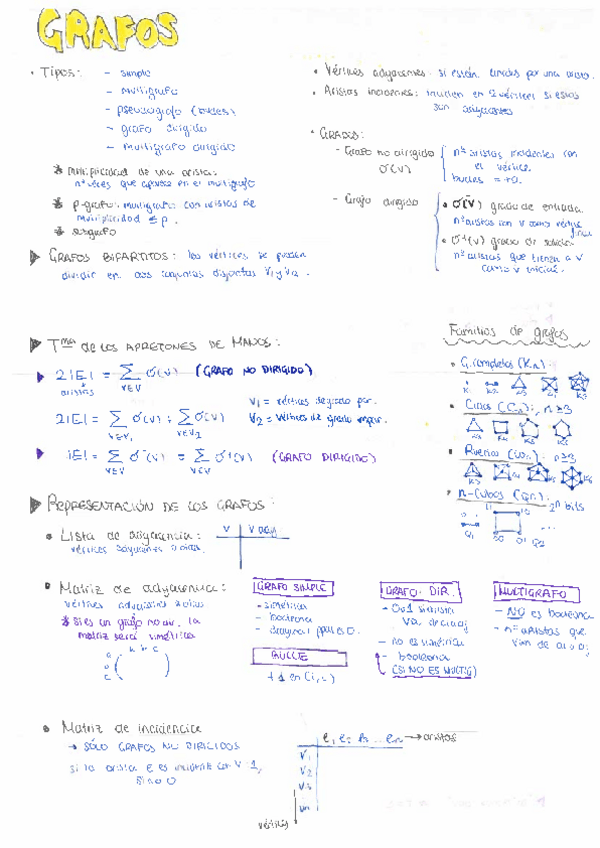 GRAFOS
• Tipos: - simple
- multigrafo
- pseudografo (bucles)
- grafo dirigido
- multigrafo dirigido
* multiplicidad de una arista:
nº veces que aparece en el multigrafo
* p-grafo: multigrafo con aristas de
multiplicidad ≤ p.
* subgrafo
▶ GRAFOS BIPARTITOS: los vértices se pueden
dividir en dos conjuntos disjuntos V1 y V2.
• Vértices adyacentes: si están unidos por una arista.
• Aristas incidentes: inciden en 2 vértices si estos
son adyacentes
• GRADOS:
- Grafo no dirigido
σ(v)
nº aristas incidentes con
el vértice.
bucles =
- Grafo dirigido
• σ⁻(v) grado de entrada.
nº aristas con v como vértice
final
• σ⁺(v) grado de salida.
nº aristas que tienen a v
como v inicial.
▶ Tma DE LOS APRETONES DE MANOS:
▶ 2|E| = Σ σ(v) (GRAFO NO DIRIGIDO)
aristas v∈V
V1 = vértices de grado par.
2|E| = Σ σ(v) + Σ σ(v) V2 = vértices de grado impar.
v∈V1 v∈V2
▶ |E| = Σ σ⁻(v) = Σ σ⁺(v) (GRAFO DIRIGIDO)
v∈V v∈V
Familias de grafos
• G. completos (Kn):
• Ciclos (Cn): n ≥ 3
• Ruedas (Wn): n ≥ 3
• n-Cubos (Qn): 2ⁿ bits
▶ REPRESENTACIÓN DE LOS GRAFOS:
• Lista de adyacencia: V | V ady.
vértices adyacentes a otros.
• Matriz de adyacencia:
vértices adyacentes a otros
* Si es un grafo no dir. la
matriz será simétrica
a b c
a
b
c
GRAFO SIMPLE
- simétrica
- booleana
- diagonal ppal es 0.
BUCLE
+1 en (i,i)
GRAFO DIR.
- 0 o 1 si arista
va de ai a aj
- no es simétrica
- booleana
(SI NO ES MULTIG)
MULTIGRAFO
- NO es booleana
- nº aristas que
van de ai a aj
• Matriz de incidencia
→ SÓLO GRAFOS NO DIRIGIDOS
si la arista e es incidente con V 1,
si no 0
e1 e2 e3 ... en → aristas
V1
V2
V3
Vn
vértices